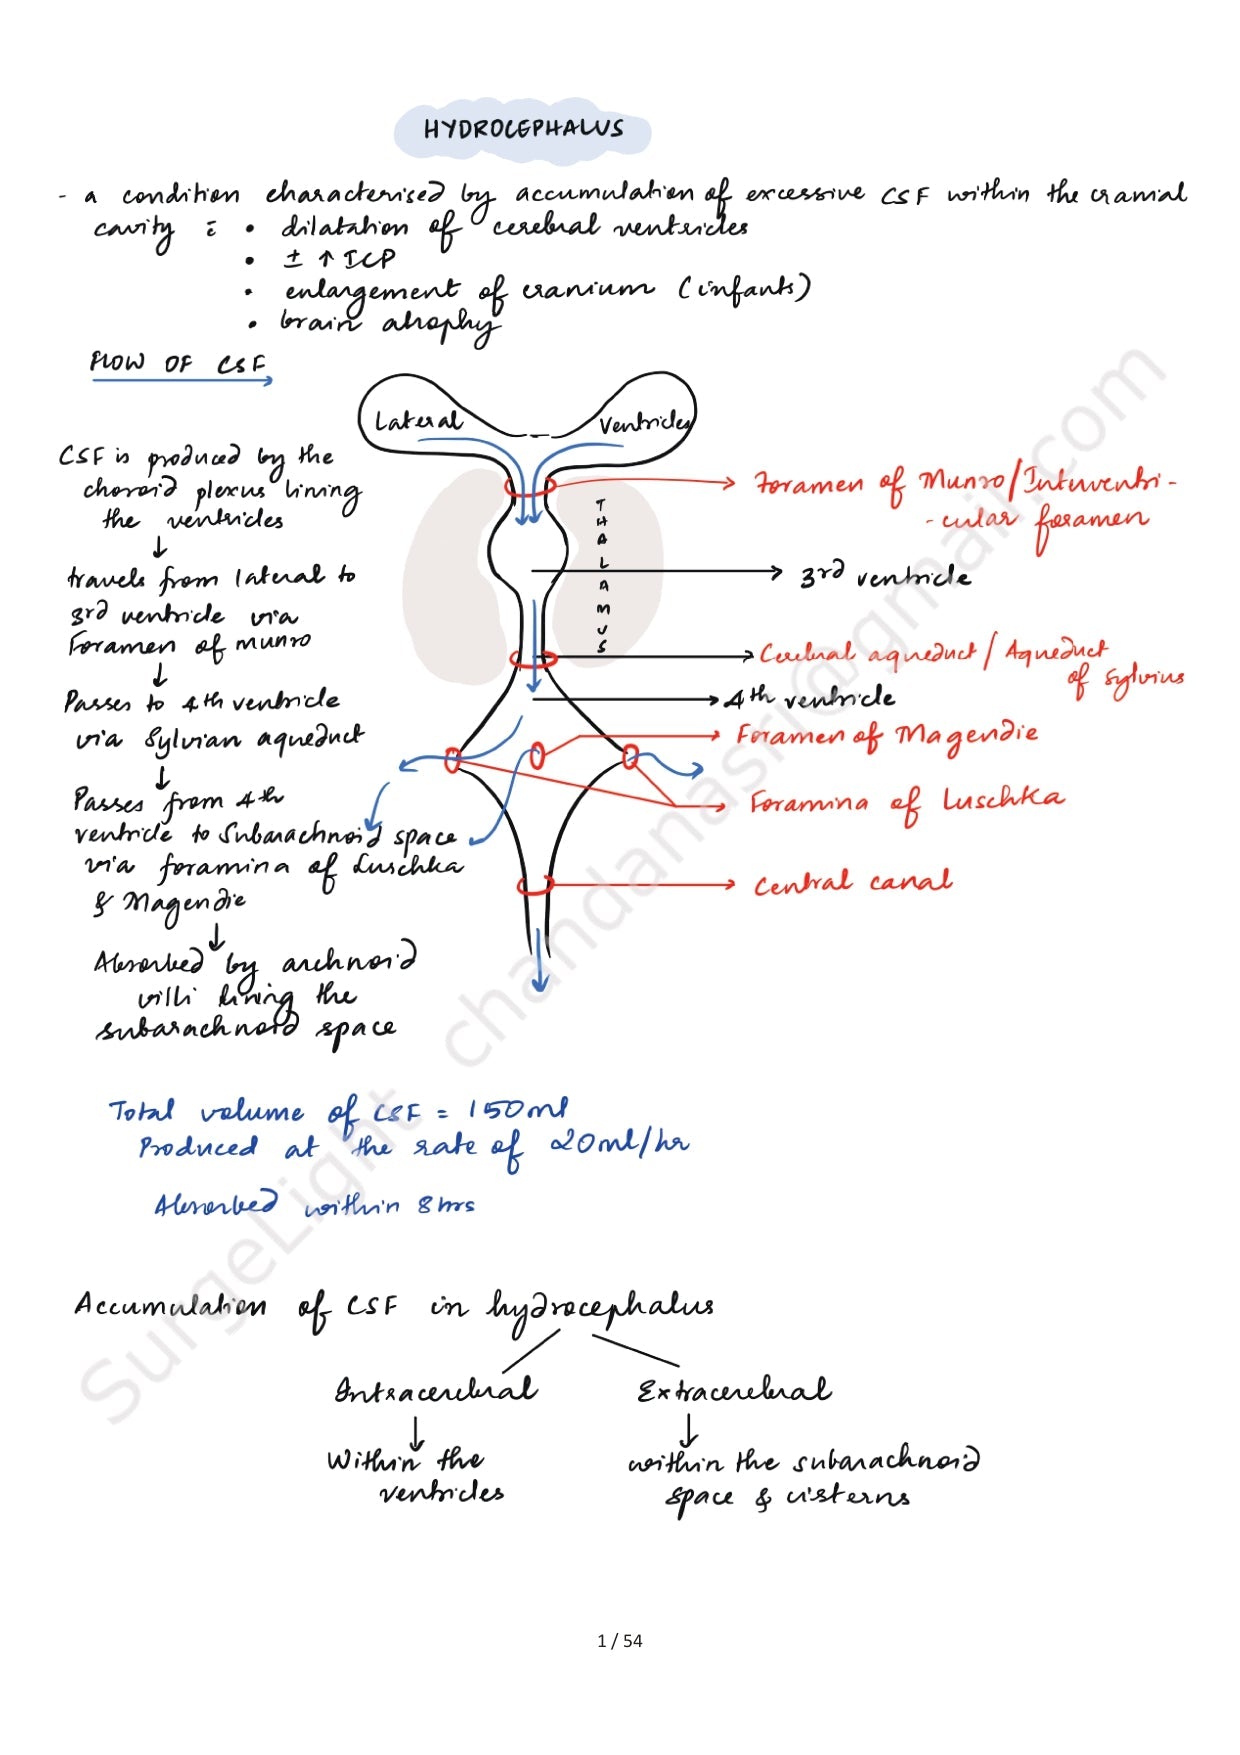 HYDROCEPHALUS
- a condition characterised by accumulation of excessive CSF within the cranial
cavity c̄ • dilatation of cerebral ventricles
• ± ↑ ICP
• enlargement of cranium (infants)
• brain atrophy
FLOW OF CSF
CSF is produced by the
choroid plexus lining
the ventricles
↓
travels from lateral to
3rd ventricle via
Foramen of munro
↓
Passes to 4th ventricle
via Sylvian aqueduct
↓
Passes from 4th
ventricle to Subarachnoid space
via foramina of Luschka
& Magendie
↓
Absorbed by archnoid
villi lining the
subarachnoid space
Lateral Ventricles
THALAMUS
Foramen of Munro/Interventri-
-cular foramen
3rd ventricle
Cerebral aqueduct / Aqueduct
of Sylvius
4th ventricle
Foramen of Magendie
Foramina of Luschka
Central canal
Total volume of CSF = 150ml
Produced at the rate of 20ml/hr
Absorbed within 8hrs
Accumulation of CSF in hydrocephalus
Intracerebral Extracerebral
↓ ↓
Within the
ventricles
within the subarachnoid
space & cisterns
SurgeLight chandanasri@gmail.com
1 / 54